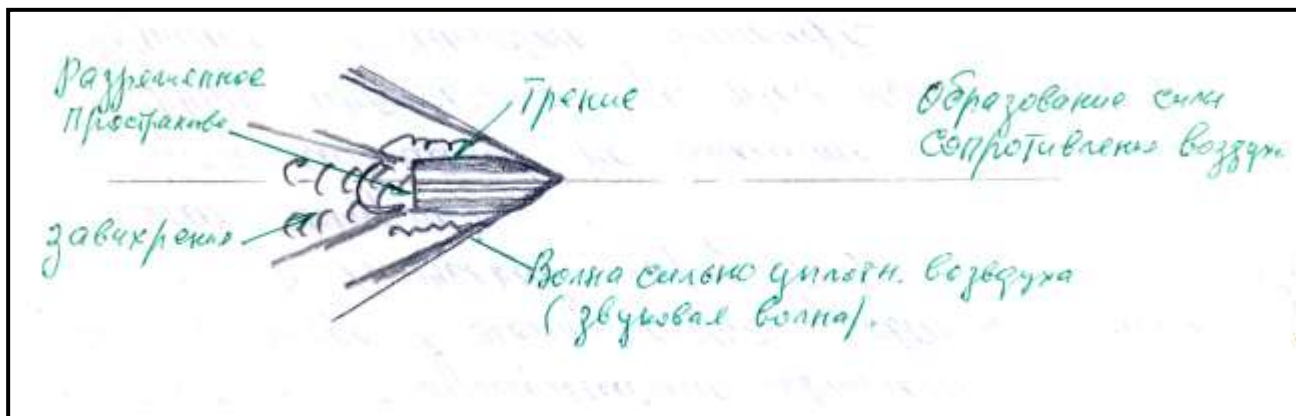 Разреженное
Пространство
Трение
Образование силы
Сопротивления воздуха
завихрения
Волна сильно уплотн. возвдуха
(звуковая волна).